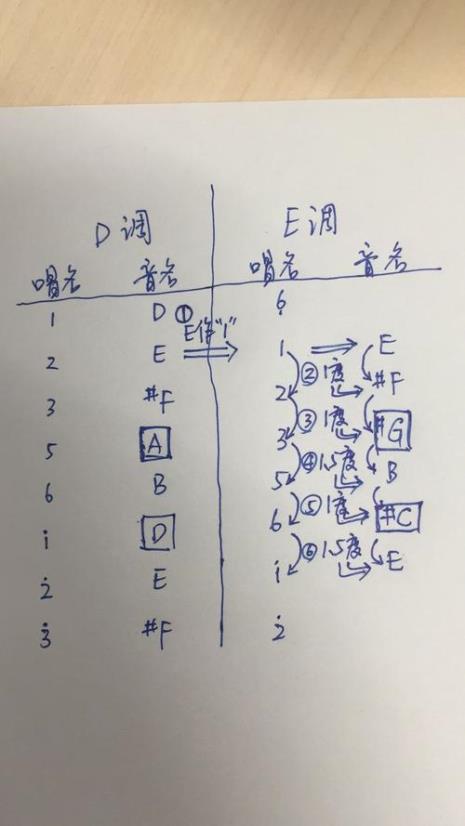 D调 E调
唱名 音名 唱名 音名
1 D ① 6̣
E作"1"
2 E ⇒ 1 ⇒ E
② 1度
3 #F 2 #F
③ 1度
5 A 3 #G
④ 1.5度
6 B 5 B
⑤ 1度
i D 6 #C
⑥ 1.5度
2̇ E i E
3̇ #F 2̇